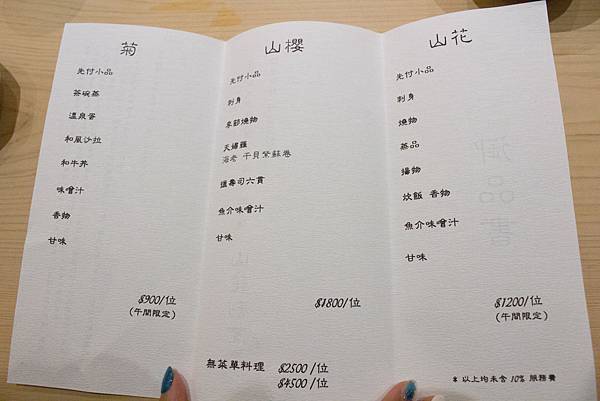 菊
先付小品
茶碗蒸
溫泉蛋
和風沙拉
和牛丼
味噌汁
香物
甘味
$900/位
(午間限定)
山櫻
先付小品
刺身
季節燒物
天婦羅
海老 干貝紫蘇卷
握壽司六貫
魚介味噌汁
甘味
$1800/位
無菜單料理 $2500/位
$4500/位
山花
先付小品
刺身
燒物
蒸品
揚物
炊飯 香物
魚介味噌汁
甘味
$1200/位
(午間限定)
* 以上均未含 10% 服務費